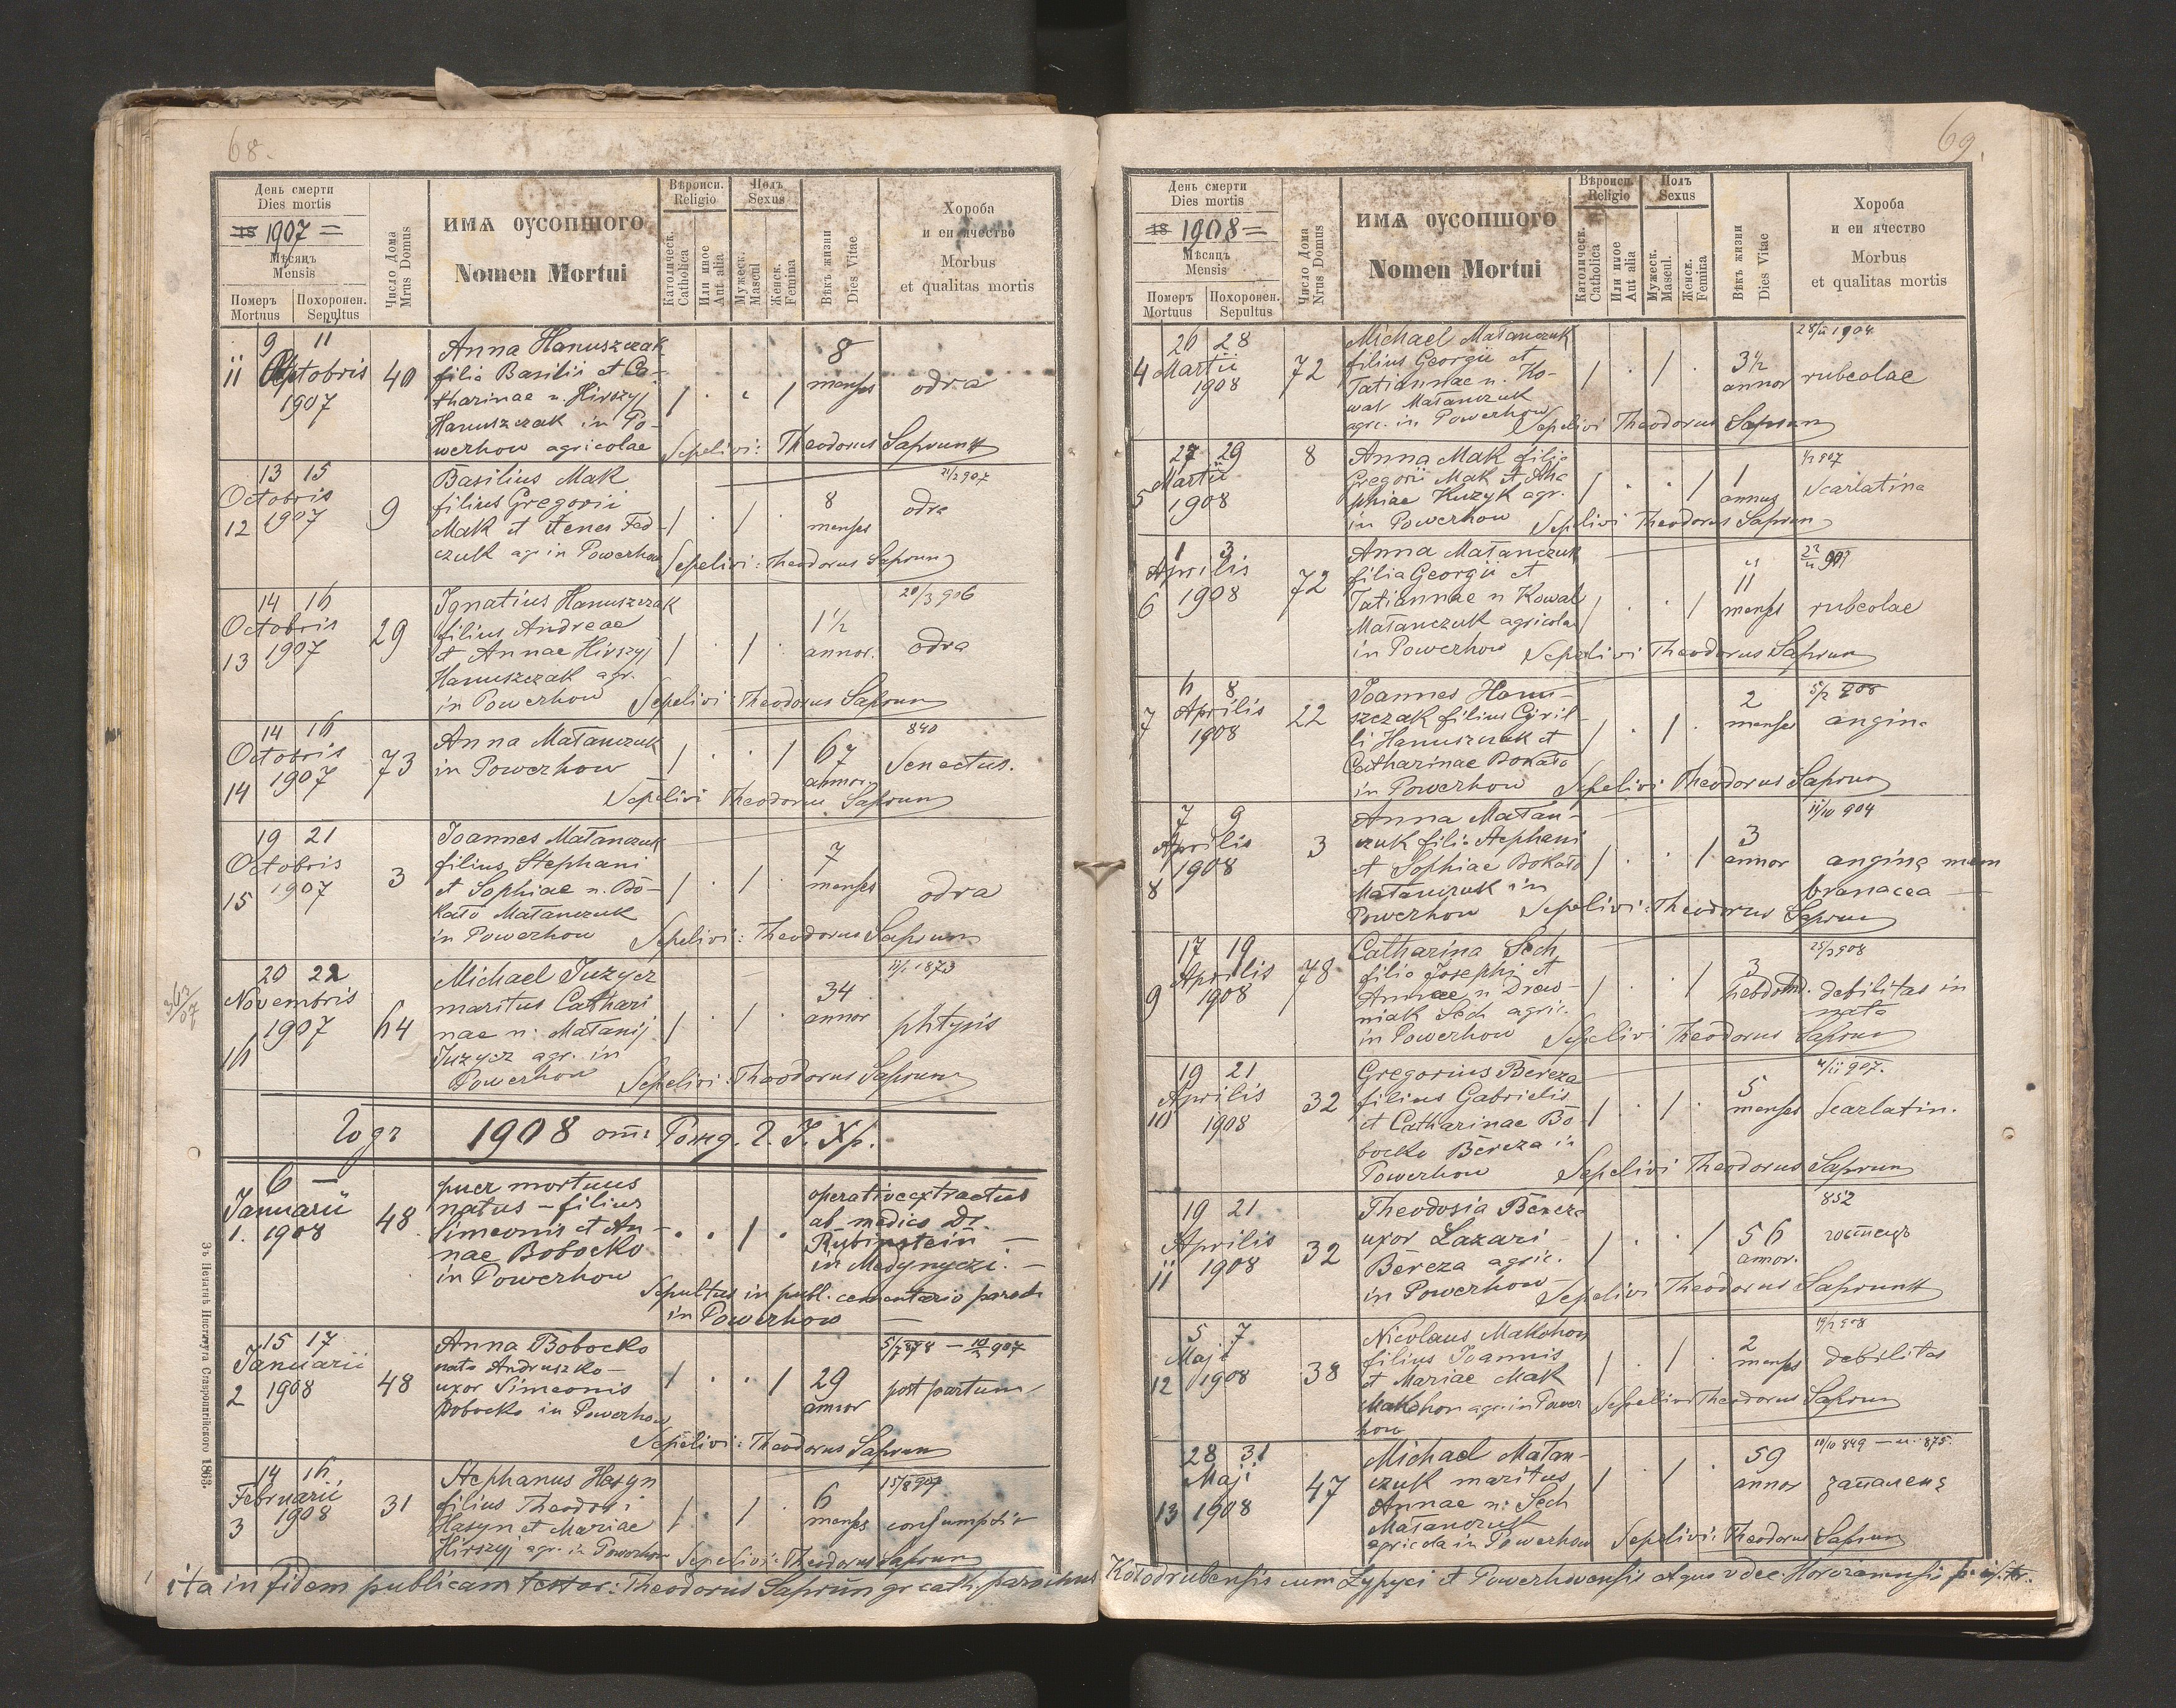 68.
День смерти
Dies mortis
18 1907 =
Мѣсяць
Mensis
Померъ Похоронен.
Mortuus Sepultus
Число Дома
Nrus Domus
ИМѦ ОУСОПШОГО
Nomen Mortui
Вѣроисп.
Religio
Католическ.
Catholica
Или иное
Aut alia
Полъ
Sexus
Мужеск.
Mascul
Женск.
Femina
Вѣкъ жизни
Dies Vitae
Хороба
и еи ячество
Morbus
et qualitas mortis
9 11
11 Octobris 1907
40
Anna Hanuszczak
filia Basilii et Ca-
tharinae n. Hirszyj
Hanuszczak in Po-
werhow agricolae
8
menses
odra
Sepelivi: Theodorus Saprun
13 15
Octobris
12 1907
9
Basilius Mak
filius Gregorii
Mak et Fed-
czuk agr in Powerhow
8
menses
odra
Sepelivi: Theodorus Saprun
14 16
Octobris
13 1907
29
Ignatius Hanuszczak
filius Andreae
et Annae Hirszyj
Hanuszczak agr.
in Powerhow
1½
annor.
20/3 906
odra
Sepelivi Theodorus Saprun
14 16
Octobris
14 1907
73
Anna Małanczuk
in Powerhow
67
annor.
840
Senectus.
Sepelivi Theodorus Saprun
19 21
Octobris
15 1907
3
Joannes Małanczuk
filius Stephani
et Sophiae n. Bo-
kało Małanczuk
in Powerhow
7
menses
odra
Sepelivi: Theodorus Saprun
363/07
20 22
Novembris
1907
16
64
Michael Juzycz
maritus Cathari
nae n: Małanij
Juzycz agr. in
Powerhow
34
annor
1873
phtysis
Sepelivi: Theodorus Saprun
Годъ 1908 от Рожд. Г. І. Хр.
6 —
Januarii
1. 1908
48
puer mortuus
natus – filius
Simeonis et An-
nae Bobocko
in Powerhow
operative extractus
ab medico Dr.
Rubinstein —
in Medynyczi. —
Sepultus in publ. cementario paroch
in Powerhow —
15 17
Januarii
2 1908
48
Anna Bobocko
nata Andruszko –
uxor Simeonis
Bobocko in Powerhow
29
annor
post partum
Sepelivi: Theodorus Saprun
14 16
Februarii
3 1908
31
Stephanus Hasyn
filius Theodori
Hasyn et Mariae
Hirszyj agr. in Powerhow
6
menses
consumptio
Sepelivi: Theodorus Saprun
ita in fidem publicam testor: Theodorus Saprun gr cath. parochus
Зъ Печатнѣ Института Ставропигійского 1863.
69.
День смерти
Dies mortis
18 1908 =
Мѣсяць
Mensis
Померъ Похоронен.
Mortuus Sepultus
Число Дома
Nrus Domus
ИМѦ ОУСОПШОГО
Nomen Mortui
Вѣроисп.
Religio
Католическ.
Catholica
Или иное
Aut alia
Полъ
Sexus
Мужеск.
Mascul.
Женск.
Femina
Вѣкъ жизни
Dies Vitae
Хороба
и еи ячество
Morbus
et qualitas mortis
26 28
4 Martii
1908
72
Michael Małanczuk
filius Georgii et
Tatiannae n. Ko-
wal Małanczuk
agric. in Powerhow
3½
annor
1904
rubeolae
Sepelivi Theodorus Saprun
27 29
Martii
5 1908
8
Anna Mak filia
Gregorii Mak et Ana
phiae Kuzyk agr.
in Powerhow
1
annus
Scarlatina
Sepelivi Theodorus Saprun
1 3
Aprilis
6 1908
72
Anna Małanczuk
filia Georgii et
Tatiannae n Kowal
Małanczuk agricola
in Powerhow
11
menses
rubeolae
Sepelivi Theodorus Saprun
6 8
7 Aprilis
1908
22
Joannes Hanu-
szczak filius Cyril-
li Hanuszczak et
Catharinae Bokało
in Powerhow
2
menses
5/2 908
angina
Sepelivi Theodorus Saprun
7 9
Aprilis
8 1908
3
Anna Małan-
czuk filia Stephani
et Sophiae Bokało
Małanczuk in
Powerhow
3
annor
11/10 904
angina mem
branacea —
Sepelivi: Theodorus Saprun
17 19
Aprilis
9 1908
78
Catharina Sech
filia Josephi et
Annae n Drew-
niak Sech agric.
in Powerhow
3
hebdomd.
25/3 908
debilitas in
nata
Sepelivi Theodorus Saprun
19 21
Aprilis
10 1908
32
Gregorius Bereza
filius Gabrielis
et Catharinae Bo
bocko Bereza in
Powerhow
5
menses
Scarlatin.
Sepelivi Theodorus Saprun
19 21
Aprilis
11 1908
32
Theodosia Bereza
uxor Lazari
Bereza agric.
in Powerhow
56
annor.
852
гостець
Sepelivi Theodorus Saprun
5 7
Maji
12 1908
38
Nicolaus Makohon
filius Joannis
et Mariae Mak
Makohon agr. in Power
how
2
menses
debilitas
Sepelivi Theodorus Saprun
28 31
Maji
13 1908
47
Michael Małan-
czuk maritus
Annae n: Sech
Małanczuk
agricola in Powerhow
59
annor
запаленє
Sepelivi: Theodorus Saprun
Kołodrubensis cum Łypyci et Powerhowensis